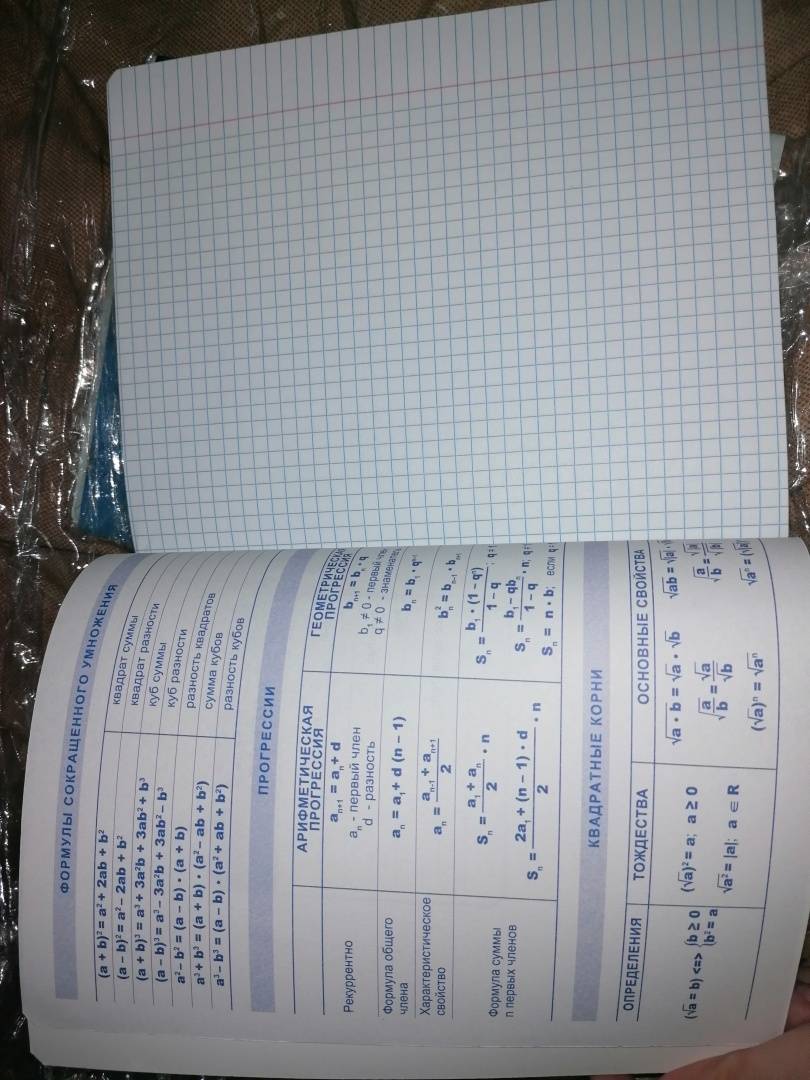 ФОРМУЛЫ СОКРАЩЕННОГО УМНОЖЕНИЯ
(a + b)² = a² + 2ab + b² квадрат суммы
(a − b)² = a² − 2ab + b² квадрат разности
(a + b)³ = a³ + 3a²b + 3ab² + b³ куб суммы
(a − b)³ = a³ − 3a²b + 3ab² − b³ куб разности
a² − b² = (a − b) · (a + b) разность квадратов
a³ + b³ = (a + b) · (a² − ab + b²) сумма кубов
a³ − b³ = (a − b) · (a² + ab + b²) разность кубов
ПРОГРЕССИИ
АРИФМЕТИЧЕСКАЯ ПРОГРЕССИЯ
ГЕОМЕТРИЧЕСКАЯ ПРОГРЕССИЯ
Рекуррентно
aₙ₊₁ = aₙ + d
aₙ - первый член
d - разность
bₙ₊₁ = bₙ · q
b₁ ≠ 0 - первый
q ≠ 0 -
Формула общего
члена
aₙ = a₁ + d (n − 1)
bₙ = b₁ · qⁿ⁻¹
Характеристическое
свойство
aₙ = (aₙ₋₁ + aₙ₊₁) / 2
bₙ² = bₙ₋₁ · bₙ₊₁
Формула суммы
n первых членов
Sₙ = (a₁ + aₙ) / 2 · n
Sₙ = (2a₁ + (n − 1) · d) / 2 · n
Sₙ = b₁ · (1 − qⁿ) / (1 − q)
Sₙ = (b₁ − qbₙ) / (1 − q)
Sₙ = n · b₁ если q =
КВАДРАТНЫЕ КОРНИ
ОПРЕДЕЛЕНИЯ ТОЖДЕСТВА ОСНОВНЫЕ СВОЙСТВА
(√a = b) <=> {b ≥ 0
b² = a
(√a)² = a; a ≥ 0
√a² = |a|; a ∈ R
√a · b = √a · √b
√(a/b) = √a/√b
(√a)ⁿ = √aⁿ
√ab = √|a| ·
√(a/b) = √|a|/√|b|
√aⁿ =